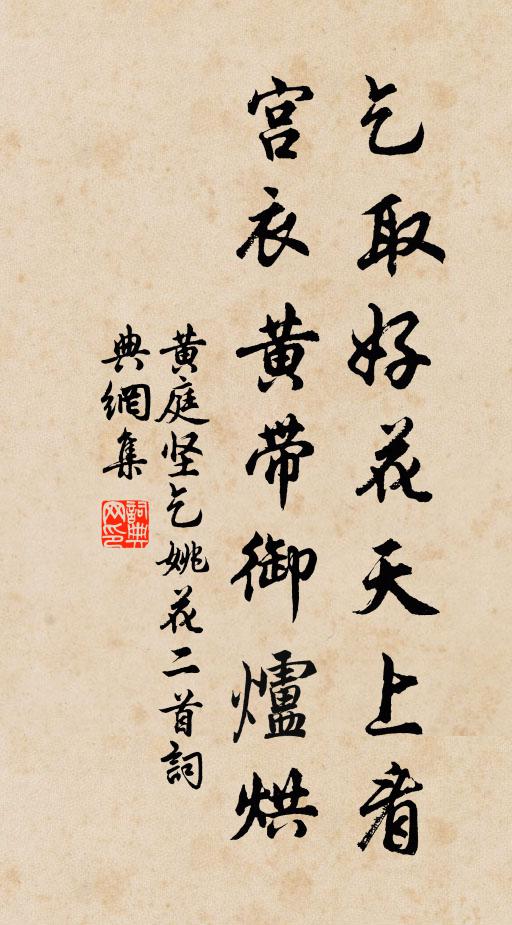 乞取好花天上看
宫衣黄带御爐烘
黄庭坚乞姚花二首詞
典網集
詞典网印